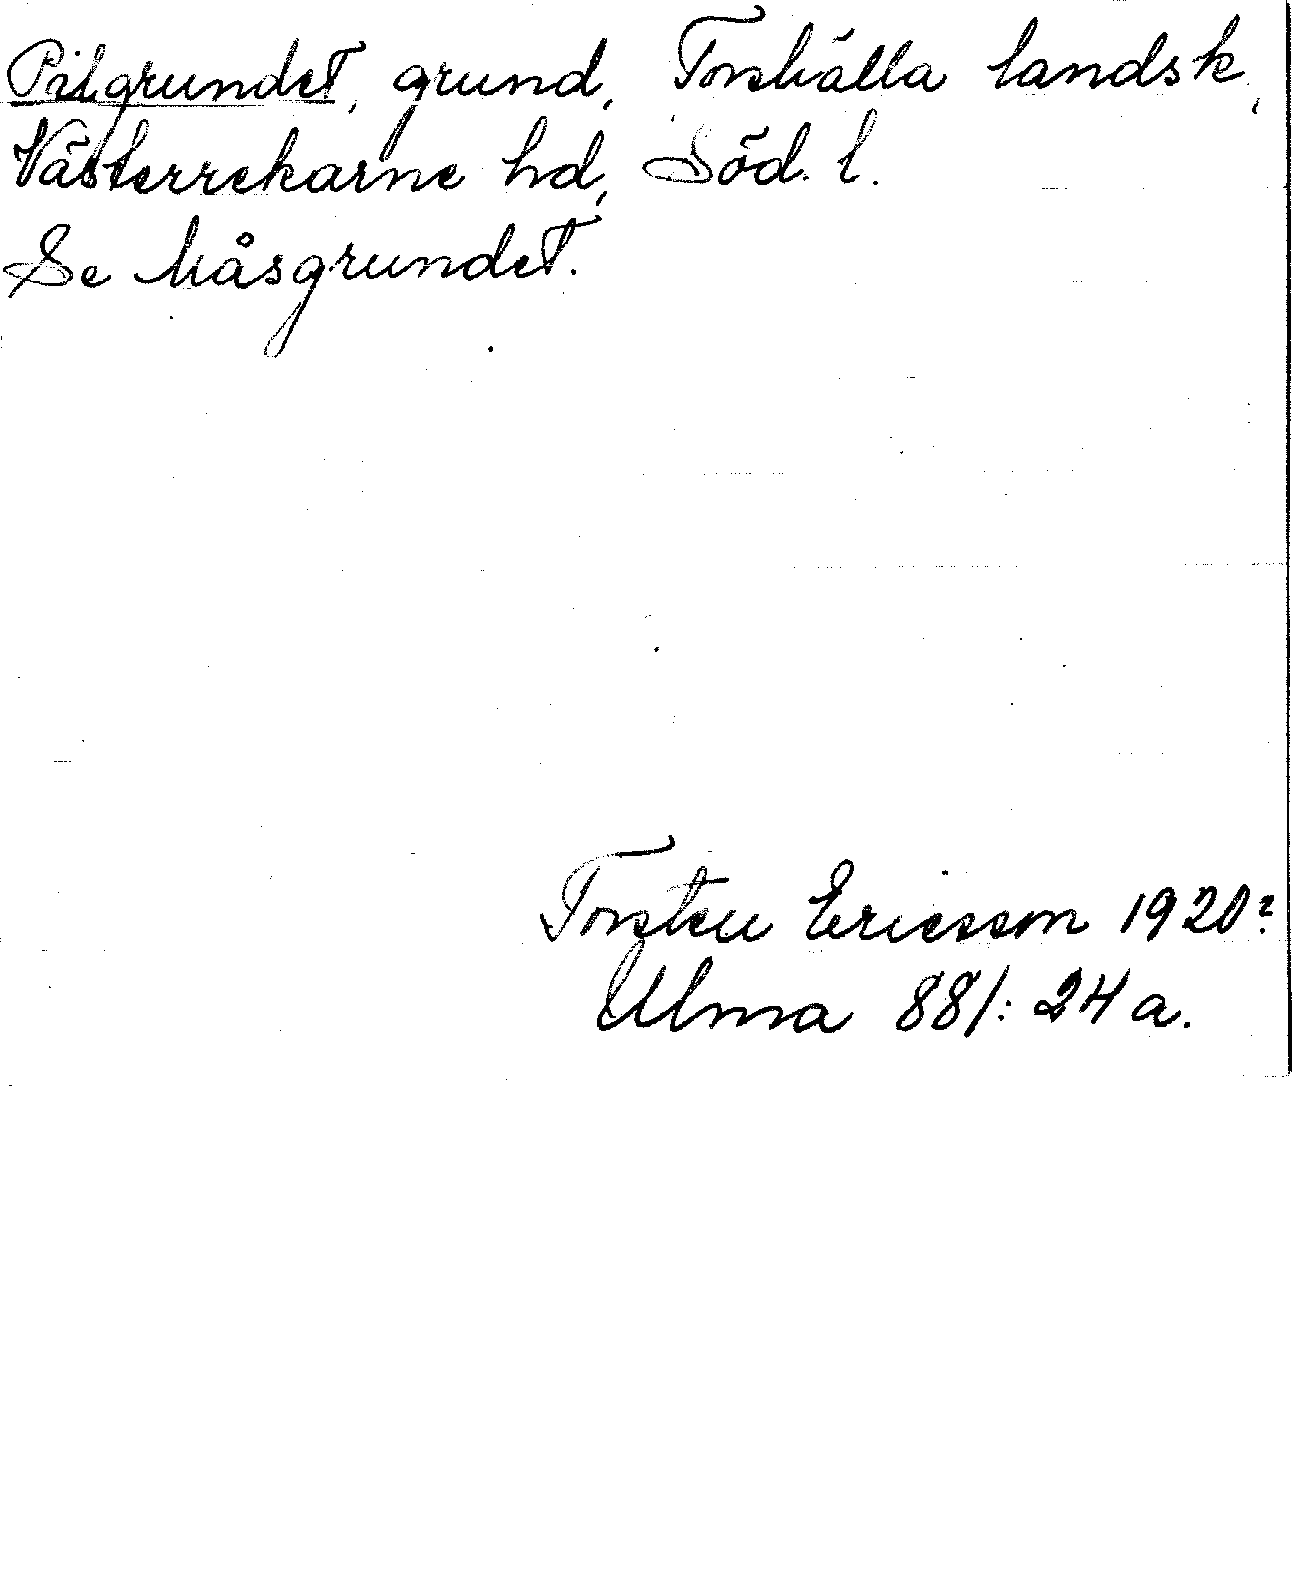 Pilgrundet, grund, Torshälla landsk,
Västerrekarne hd, Söd. l.
Se Måsgrundet.
Torsten Ericsson 1920?
Ulma 88/: 24 a.